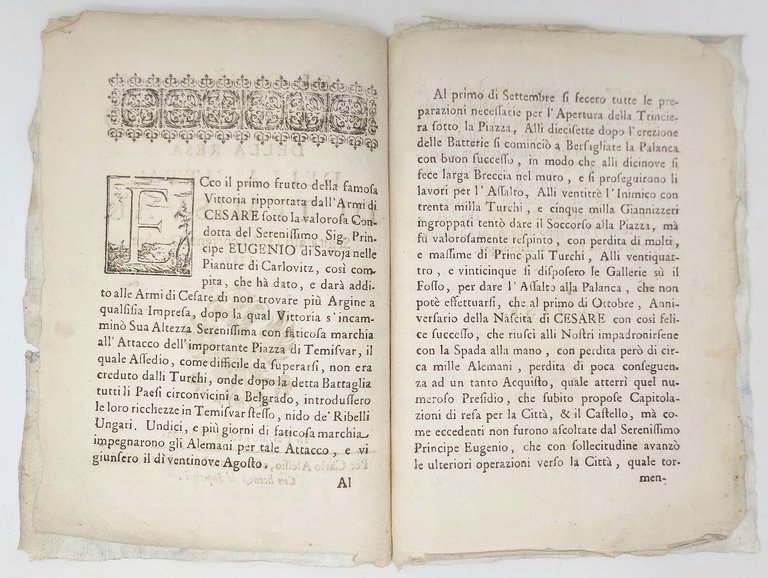 ECco il primo frutto della famoſa
Vittoria ripportata dall'Armi di
CESARE ſotto la valoroſa Con-
dotta del Sereniſſimo Sig. Prin-
cipe EUGENIO di Savoja nelle
Pianure di Carlovitz, così com-
pita, che hà dato, e darà addi-
to alle Armi di Ceſare di non trovare più Argine a
qualſiſia Impreſa, dopo la qual Vittoria s'incam-
minò Sua Altezza Sereniſſima con faticoſa marchia
all'Attacco dell'importante Piazza di Temiſvar, il
quale Aſſedio, come difficile da ſuperarſi, non era
creduto dalli Turchi, onde dopo la detta Battaglia
tutti li Paeſi circonvicini a Belgrado, introduſſero
le loro ricchezze in Temiſvar ſteſſo, nido de' Ribelli
Ungari. Undici, e più giorni di faticoſa marchia
impegnarono gli Alemani per tale Attacco, e vi
giunſero il dì ventinove Agoſto.
Al
Al primo di Settembre ſi fecero tutte le pre-
parazioni neceſſarie per l'Apertura della Trincie-
ra ſotto la Piazza, Alli dieciſette dopo l'erezione
delle Batterie ſi cominciò a Berſagliare la Palanca
con buon ſucceſſo, in modo che alli dicinove ſi
fece larga Breccia nel muro, e ſi proſeguirono li
lavori per l'Aſſalto, Alli ventitrè l'Inimico con
trenta milla Turchi, e cinque milla Giannizzeri
ingroppati tentò dare il Soccorſo alla Piazza, mà
fù valoroſamente reſpinto, con perdita di molti,
e maſſime di Principali Turchi, Alli ventiquat-
tro, e vinticinque ſi diſpoſero le Gallerie sù il
Foſſo, per dare l'Aſſalto alla Palanca, che non
potè effettuarſi, che al primo di Ottobre, Anni-
verſario della Naſcita di CESARE con così felice
ſucceſſo, che riuſcì alli Noſtri impadronirſene
con la Spada alla mano, con perdita però di cir-
ca mille Alemani, perdita di poca conſeguen-
za ad un tanto Acquiſto, quale atterrì quel nu-
meroſo Preſidio, che ſubito propoſe Capitola-
zioni di reſa per la Città, & il Caſtello, mà co-
me eccedenti non furono aſcoltate dal Sereniſſimo
Principe Eugenio, che con ſollecitudine avanzò
le ulteriori operazioni verſo la Città, quale tor-
men-